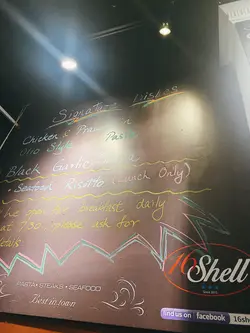 Signature Dishes
Chicken & Prawn
Style Pasta
Black Garlic
• Seafood Risotto (Lunch Only)
open for breakfast daily
at 7:30 please ask for
PASTA • STEAKS • SEAFOOD
Best in town
16 Shell
find us on facebook 16sh